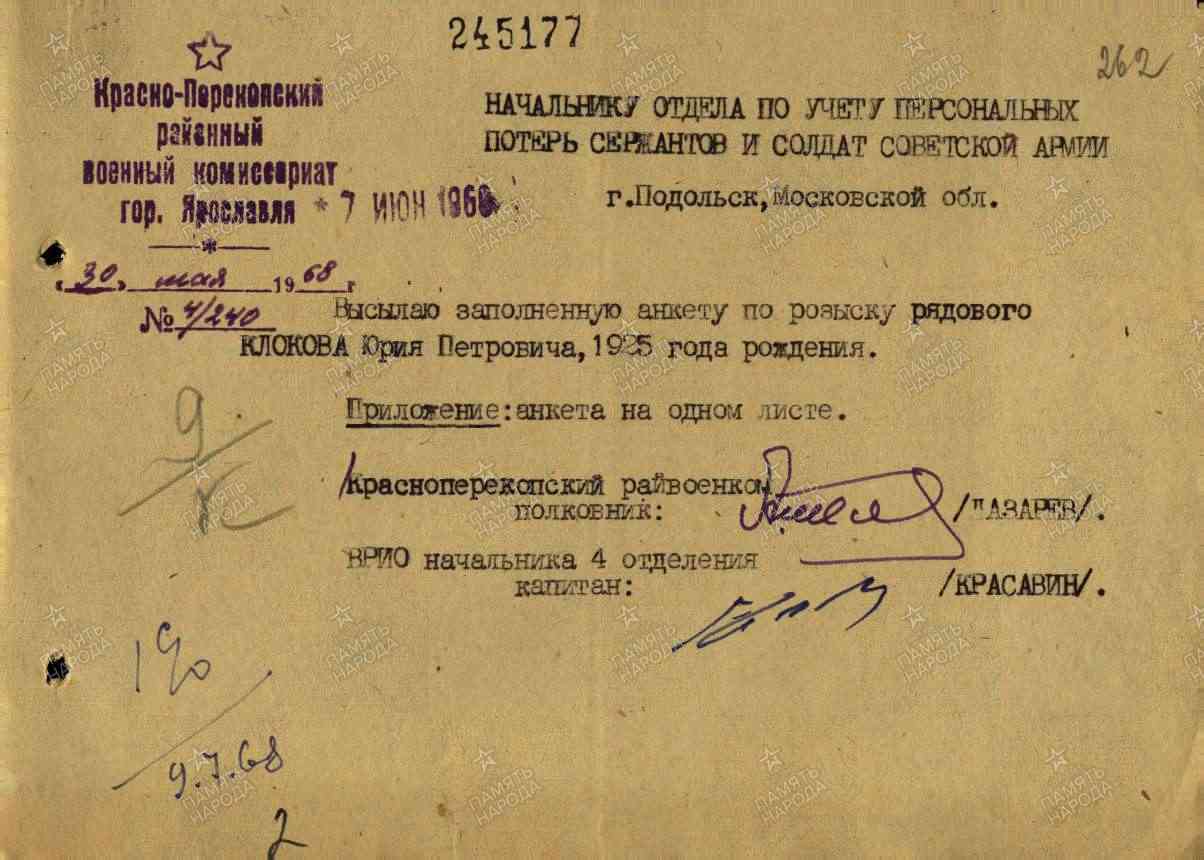 245177
262
Красно-Перекопский
районный
военный комиссариат
гор. Ярославля
* 7 ИЮН 1968
„30„ мая 1968 г
№ 4/240
НАЧАЛЬНИКУ ОТДЕЛА ПО УЧЕТУ ПЕРСОНАЛЬНЫХ
ПОТЕРЬ СЕРЖАНТОВ И СОЛДАТ СОВЕТСКОЙ АРМИИ
г.Подольск,Московской обл.
Высылаю заполненную анкету по розыску рядового
КЛОКОВА Юрия Петровича,1925 года рождения.
Приложение:анкета на одном листе.
Красноперекопский райвоенком
полковник: /ЛАЗАРЕВ/.
ВРИО начальника 4 отделения
капитан: /КРАСАВИН/.
9
9.7.68
2
ПАМЯТЬ НАРОДА